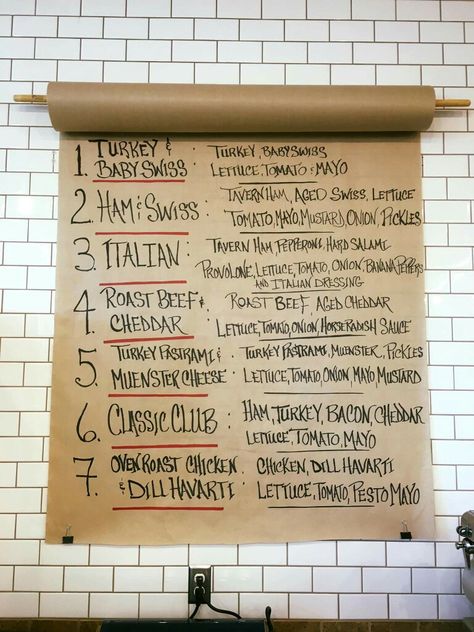 1. TURKEY & BABY SWISS : TURKEY, BABY SWISS
LETTUCE, TOMATO & MAYO
2. HAM & SWISS : TAVERN HAM, AGED SWISS, LETTUCE
TOMATO, MAYO, MUSTARD, ONION, PICKLES
3. ITALIAN : TAVERN HAM, PEPPERONI, HARD SALAMI
PROVOLONE, LETTUCE, TOMATO, ONION, BANANA PEPPERS
AND ITALIAN DRESSING
4. ROAST BEEF & CHEDDAR : ROAST BEEF, AGED CHEDDAR
LETTUCE, TOMATO, ONION, HORSERADISH SAUCE
5. TURKEY PASTRAMI & MUENSTER CHEESE : TURKEY PASTRAMI, MUENSTER, PICKLES
LETTUCE, TOMATO, ONION, MAYO, MUSTARD
6. CLASSIC CLUB : HAM, TURKEY, BACON, CHEDDAR
LETTUCE, TOMATO, MAYO
7. OVEN ROAST CHICKEN & DILL HAVARTI : CHICKEN, DILL HAVARTI
LETTUCE, TOMATO, PESTO MAYO